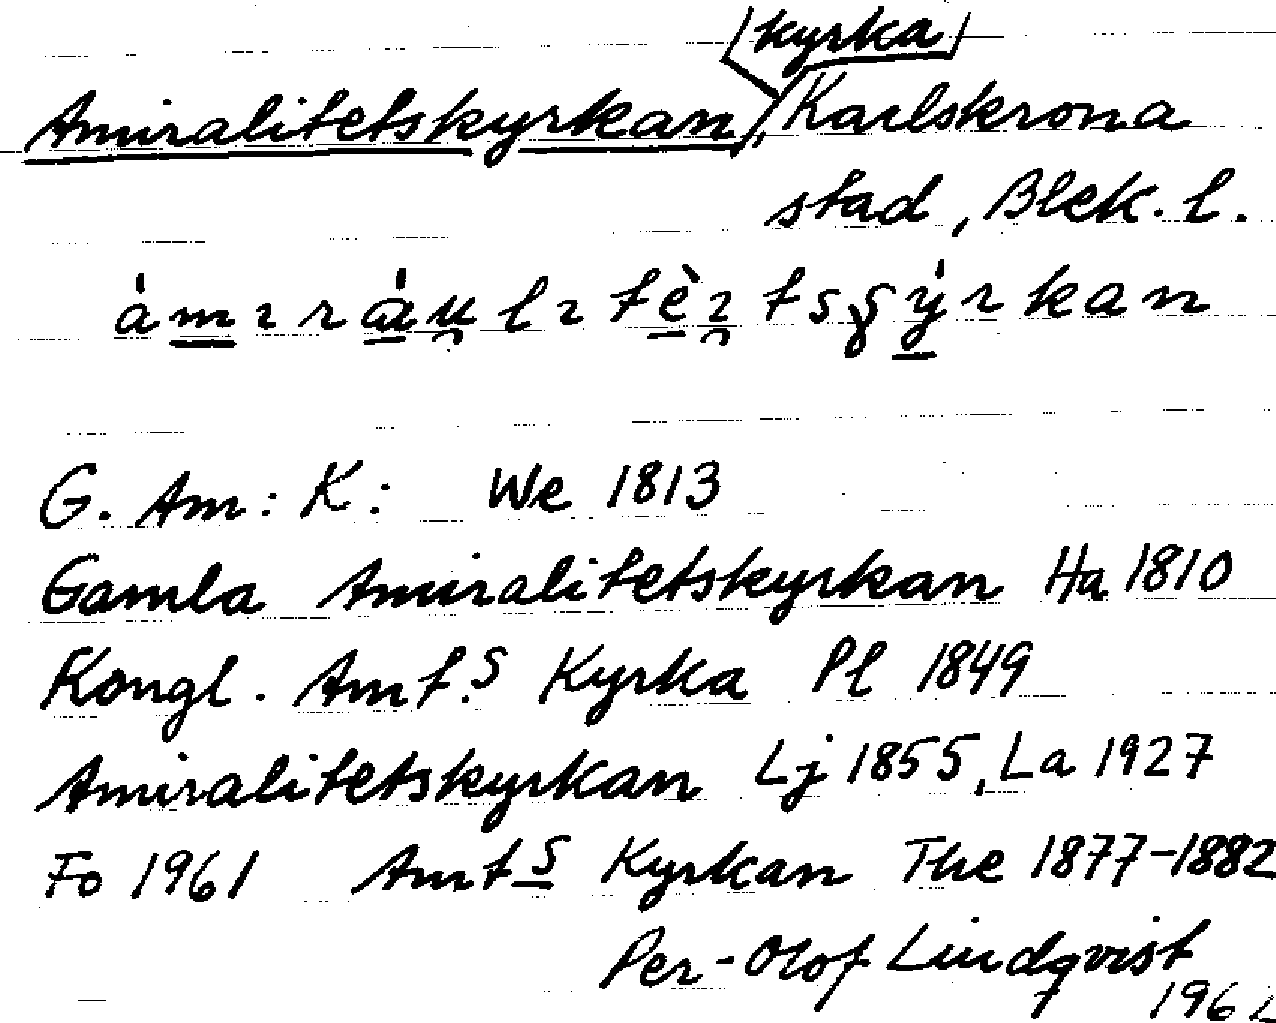 kyrka
Amiralitetskyrkan, Karlskrona
stad, Blek. l.
G. Am: K: We 1813
Gamla Amiralitetskyrkan Ha 1810
Kongl. Amt.s Kyrka Pl 1849
Amiralitetskyrkan Lj 1855, La 1927
Fo 1961 Amts Kyrkan The 1877-1882
Per-Olof Lindqvist